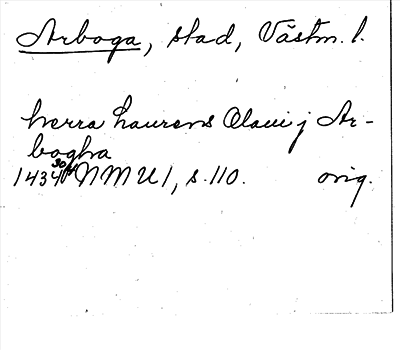 Arboga, stad, Västm. l.
herra haurens Olaui j Ar-
bogha
1434 30/4 NMU 1, s. 110. orig.